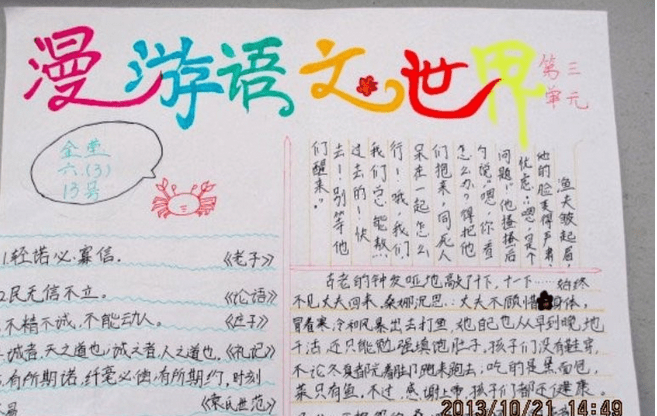 漫游语文世界
第三
单元
金堂
六.(3)
13号
1.轻诺必寡信.《老子》
2.民无信不立.《论语》
不精不诚,不能动人.《庄子》
诚者,天之道也;诚之者,人之道也.《礼记》
有所期诺,纤毫必偿;有所期约,时刻
《袁氏世范》
渔夫皱起眉,
他的脸变得严肃,
忧虑:"嗯,是个
问题!"他搔搔后
勺说:"嗯,你看
怎么办?得把他
们抱来,同死人
呆在一起怎么
行!哦,我们,
我们总能熬
过去的!快
去!别等他
们醒来."
古老的钟发哑地敲了十下,十一下……始终
不见丈夫回来.桑娜沉思:丈夫不顾惜身体,
冒着寒冷和风暴出去打鱼,她自己也从早到晚地
干活,还只能勉强填饱肚子.孩子们没有鞋穿,
不论冬夏都光着脚跑来跑去;吃的是黑面包,
菜只有鱼.不过,感谢上帝,孩子们都还健康.
2013/10/21 14:49